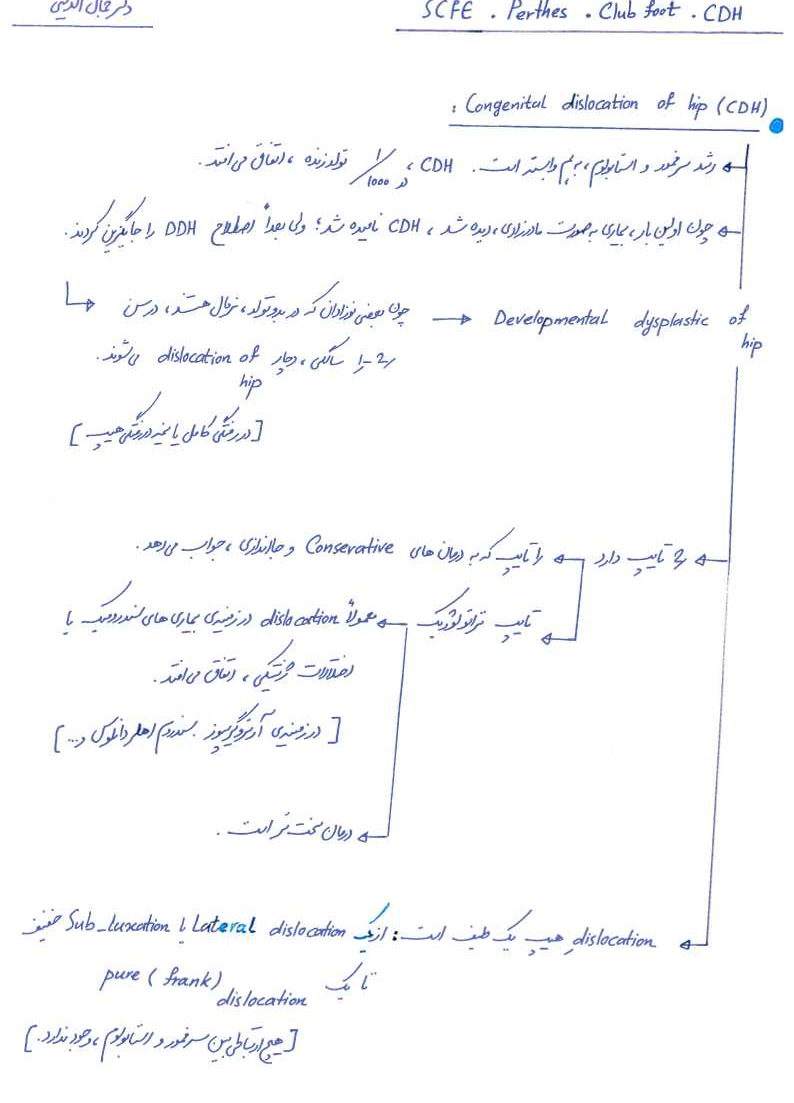 SCFE . Perthes . Club foot . CDH
دکتر جمال الدینی
Congenital dislocation of hip (CDH) :
رشد سر فمور و استابولوم، به هم وابسته است. CDH، در 1/1000 تولد زنده، اتفاق می‌افتد.
چون اولین بار، بیماری به صورت مادرزادی، دیده شد، CDH نامیده شد؛ ولی بعداً اصطلاح DDH را جایگزین کردند.
Developmental dysplastic of hip → چون بعضی نوزادان که در بدو تولد، نرمال هستند، در سن
1-2 سالگی، دچار dislocation of hip می‌شوند.
[در رفتگی کامل یا نیمه دررفتگی هیپ]
2 تایپ دارد ← 1 تایپ که به درمان های Conserative و جااندازی، جواب می‌دهد.
تایپ تراتولوژیک ← معمولاً dislocation در زمینه‌ی بیماری های سندرومیک یا
اختلالات ژنتیکی، اتفاق می‌افتد.
[در زمینه‌ی آرتروگریپوز، سندرم اهلر دانلوس و...]
درمان سخت تر است.
dislocation هیپ یک طیف است: از یک Lateral dislocation یا Sub-luxation خفیف
تا یک pure (frank) dislocation
[هیچ ارتباطی بین سر فمور و استابولوم، وجود ندارد.]